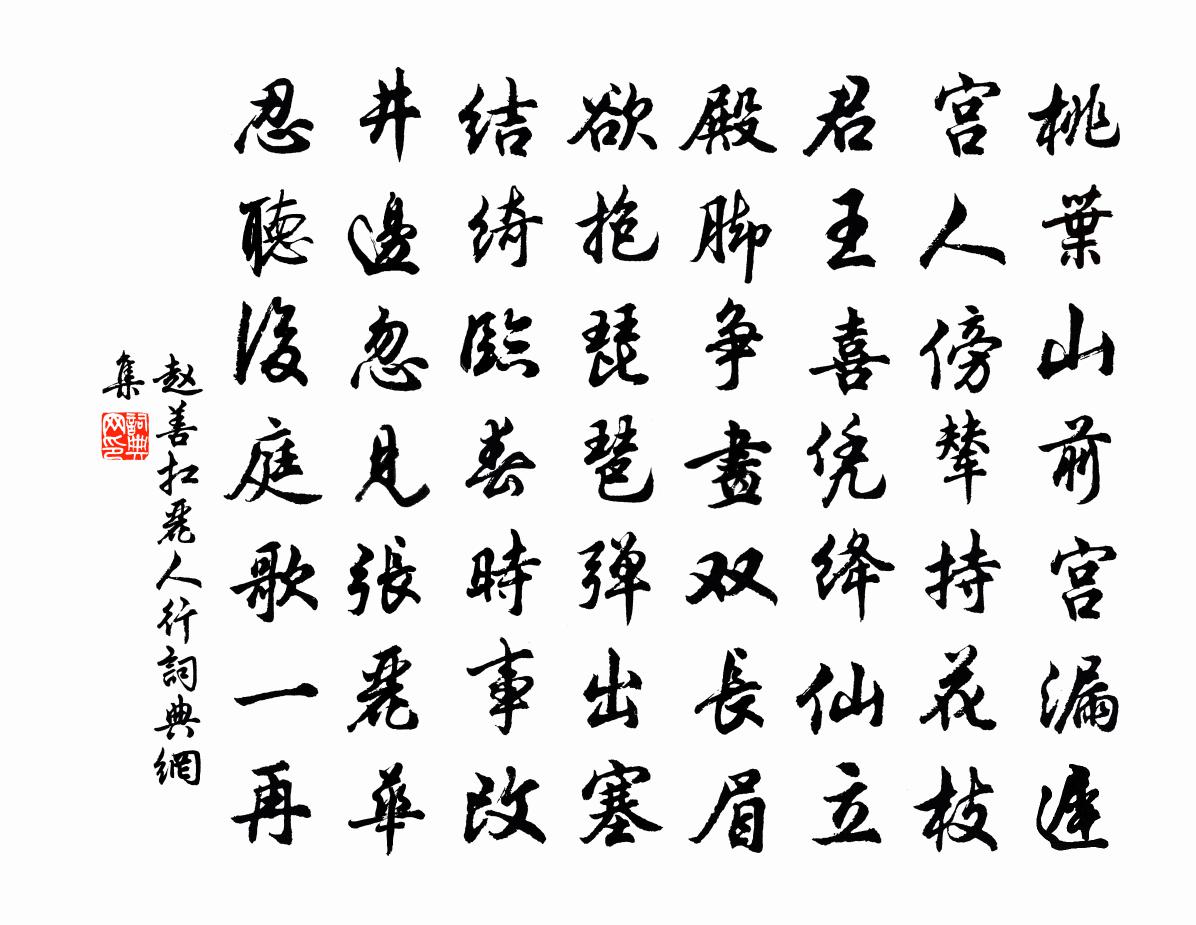 桃葉山前宮漏遲
宮人傍輦持花枝
君王喜凭绛仙立
殿脚争畫双長眉
欲抱琵琶弹出塞
结绮臨春時事改
井邊忽見張麗華
忍聽後庭歌一再
赵善扛麗人行詞典網
集
詞典网印